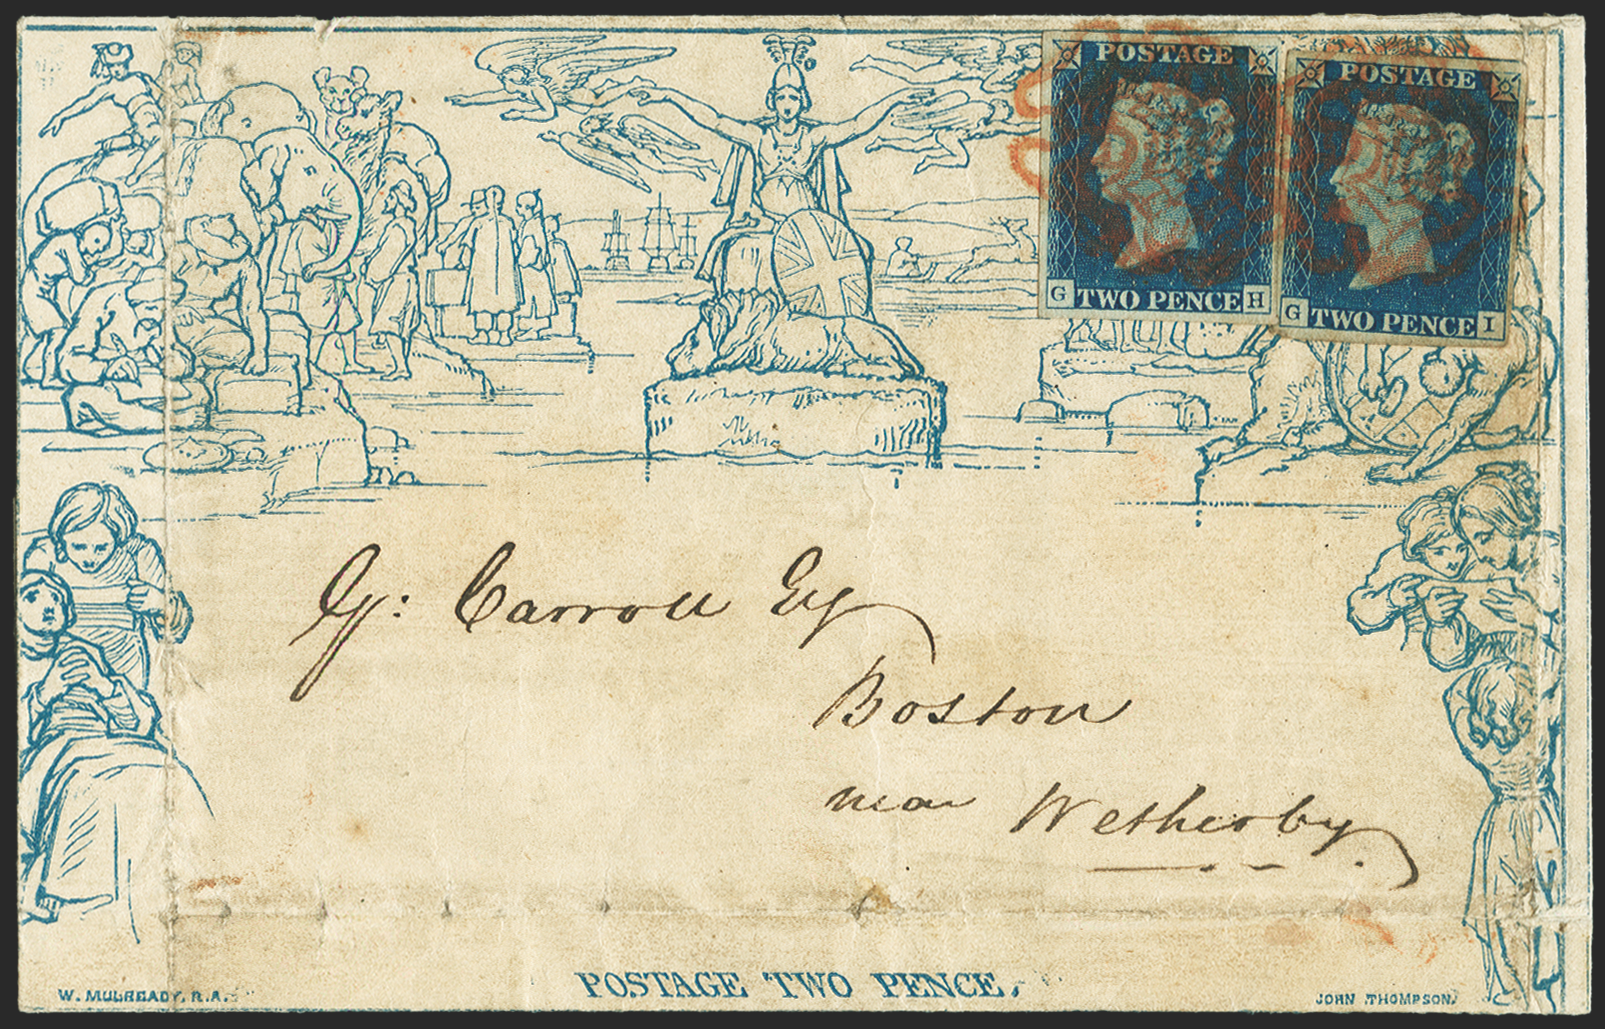 POSTAGE
POSTAGE
G TWO PENCE H
G TWO PENCE I
G: Carroll Esq
Boston
near Wetherby.
POSTAGE TWO PENCE.
W. MULREADY, R.A.
JOHN THOMPSON.